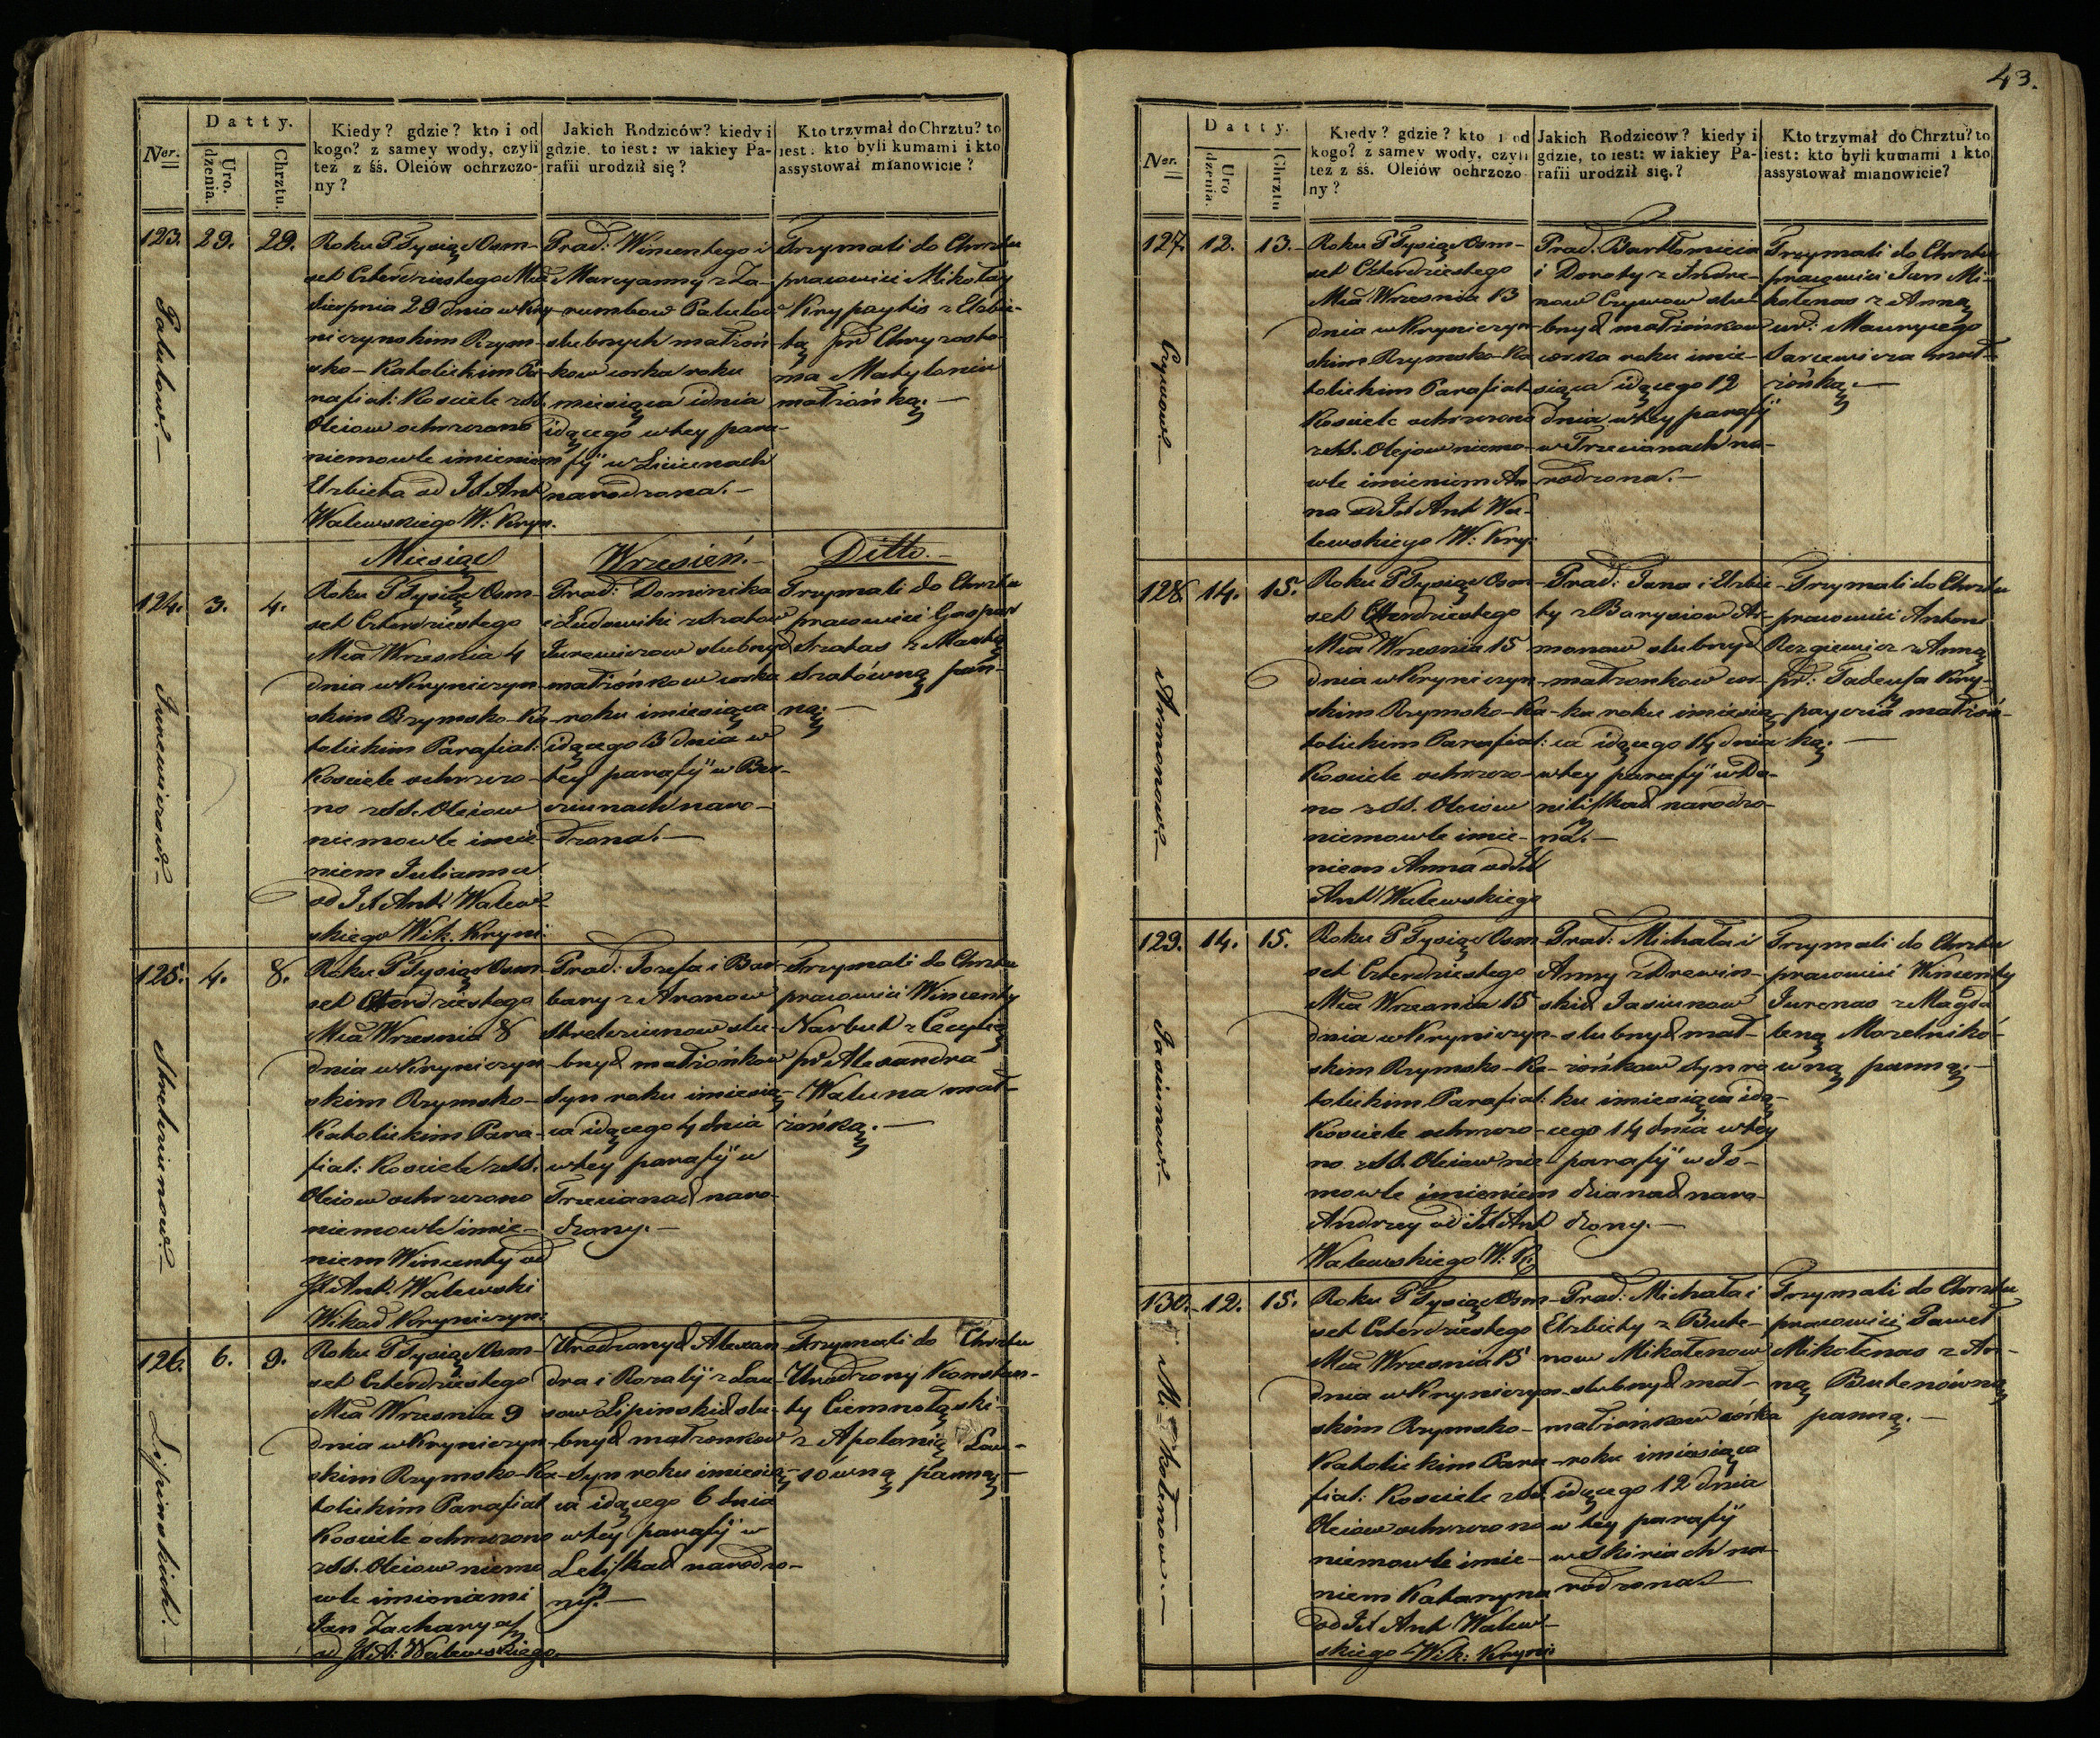 43.
Ner.
Datty.
Uro.
dzenia.
Chrztu.
Kiedy? gdzie? kto i od
kogo? z samey wody, czyli
też z śś. Oleiów ochrzczo-
ny?
Jakich Rodziców? kiedy i
gdzie, to iest: w iakiey Pa-
rafii urodził się?
Kto trzymał do Chrztu? to
iest: kto byli kumami i kto
assystował mianowicie?
123. 29. 29.
Roku P Tysiąc Osm-
set Czterdziestego Mca
Sierpnia 29 dnia w Kry-
niczynskim Rzym-
sko-Katolickim Pa-
rafial: Kosciele z SS.
Oleiow ochrzczono
niemowle imieniem
Elzbieta od JX Ant
Walewskiego W: Kryn.
Prad: Wincentego i
Maryanny z Za-
rumbow
slubnych małżoń-
kow corka roku
miesiąca i dnia
idącego w tey para-
fÿ w
narodzona.-
Trzymali do Chrztu
pracowici Mikołay
z Elzbie-
tą pd Chryzosto-
ma
małżonką.-
Miesiąc Wrzesień.- Ditto.-
124. 3. 4.
Juncewiczow.-
Roku P Tysiąc Osm-
set Czterdziestego
Mca Wrzesnia 4
dnia w Kryniczyn-
skim Rzymsko-Ka-
tolickim Parafial:
Kosciele ochrzczo-
no z SS. Oleiow
niemowle imie-
niem Julianna
od JX Ant Walew-
skiego Wik. Kryni:
Prad: Dominika
i Ludowiki z Szatow
slubnych
małżonkow corka
roku i miesiąca
idącego 3 dnia w
tey parafÿ w
naro-
dzona.-
Trzymali do Chrztu
pracowici Gaspar
Szatas z Martą
Szatówną pan-
ną.-
125. 4. 8.
Roku P Tysiąc Osm-
set Czterdziestego
Mca Wrzesnia 8
dnia w Kryniczyn-
skim Rzymsko-
Katolickim Para-
fial: Kosciele z SS.
Oleiow ochrzczono
niemowle imie-
niem Wincenty od
JX Ant. Walewski
Wikad Kryniczyn:
Prad: Jozefa i Bar-
bary z Aronow
slu-
bnych małżonkow
Syn roku i miesią-
ca idącego 4 dnia
w tey parafÿ w
Trzecianach naro-
dzony.-
Trzymali do Chrztu
pracowici Wincenty
Narbut z Cecylią
pd Alexandra
Waluna mał-
żonką.-
126. 6. 9.
Lipinskich.-
Roku P Tysiąc Osm-
set Czterdziestego
Mca Wrzesnia 9
dnia w Kryniczyn-
skim Rzymsko-Ka-
tolickim Parafial
Kosciele ochrzczono
z SS. Oleiow niemo
wle imionami
Jan Zacharyasz
od JX A: Walewskiego.
Urodzonych Alexan-
dra i Rozalÿ z Lau-
sow Lipinskich slu-
bnych małżonkow
Syn roku i miesią-
ca idącego 6 dnia
w tey parafÿ w
narodzo-
ny.-
Trzymali do Chrztu
Urodzony Konstan-
ty Ciemnołąski
z Apolonią Lau-
sówną panną.-
Ner.
Datty.
Uro
dzenia.
Chrztu
Kiedy? gdzie? kto i od
kogo? z samey wody, czyli
też z śś. Oleiów ochrzczo
ny?
Jakich Rodziców? kiedy i
gdzie, to iest: w iakiey Pa-
rafii urodził się.?
Kto trzymał do Chrztu? to
iest: kto byli kumami i kto
assystował mianowicie?
127. 12. 13.-
Roku P Tysiąc Osm-
set Czterdziestego
Mca Wrzesnia 13
dnia w Kryniczyn-
skim Rzymsko-Ka
tolickim Parafial
Kosciele ochrzczono
z SS. Olejow niemo-
wle imieniem An
na od JX Ant Wa-
lewskiego W: Kry:
Prad: Bartłomieia
i Doroty z Andre-
now slu-
bnych małżonkow
corka roku i mie-
siąca idącego 12
dnia w tey parafÿ
w Trzecianach na-
rodzona.-
Trzymali do Chrztu
pracowici Jan Mi-
kołenas z Anną
Maurycego
mał-
żonką.-
128. 14. 15.
Armonow.-
Roku P Tysiąc Osm-
set Czterdziestego
Mca Wrzesnia 15
dnia w Kryniczyn
skim Rzymsko-Ka-
tolickim Parafial:
Kosciele ochrzczo-
no z SS. Oleiow
niemowle imie-
niem Anna od JX
Ant Walewskiego
Prad: Jana i Elzbie-
ty z Barysiow Ar-
monow slubnych
małżonkow cor-
ka roku i miesią-
ca idącego 14 dnia
w tey parafÿ w Da-
niliszkach narodzo-
na.-
Trzymali do Chrztu
pracowici Antoni
z Anną
pd: Tadeusza
małżon-
ką.-
129. 14. 15.
Jasiunow.-
Roku P Tysiąc Osm
set Czterdziestego
Mca Wrzesnia 15
dnia w Kryniczyn-
skim Rzymsko-Ka-
tolickim Parafial:
Kosciele ochrzczo-
no z SS. Oleiow nie-
mowle imieniem
Andrzey od JX Ant
Walewskiego W: K.
Prad: Michała i
Anny z Drewin-
skich Jasiunow
slubnych mał-
żonkow Syn ro
ku i miesiąca idą-
cego 14 dnia w tey
parafÿ w
naro-
dzony.-
Trzymali do Chrztu
pracowici Wincenty
Jurenas z Magda
leną
wną panną.-
130. 12. 15.
Mikołenow.-
Roku P Tysiąc Osm-
set Czterdziestego
Mca Wrzesnia 15
dnia w Kryniczyn-
skim Rzymsko-
Katolickim Para
fial: Kosciele z SS.
Oleiow ochrzczono
niemowle imie-
niem Katarzyna
od JX Ant Walew-
skiego Wik: Kryni
Prad: Michała i
Elzbiety z Bute-
now Mikołenow
slubnych mał-
małżonkow córka
roku i miesiąca
idącego 12 dnia
w tey parafÿ
w Skiriach na-
rodzona
Trzymali do Chrztu
pracowici Paweł
Mikołenas z An-
ną Butenówną
panną.-